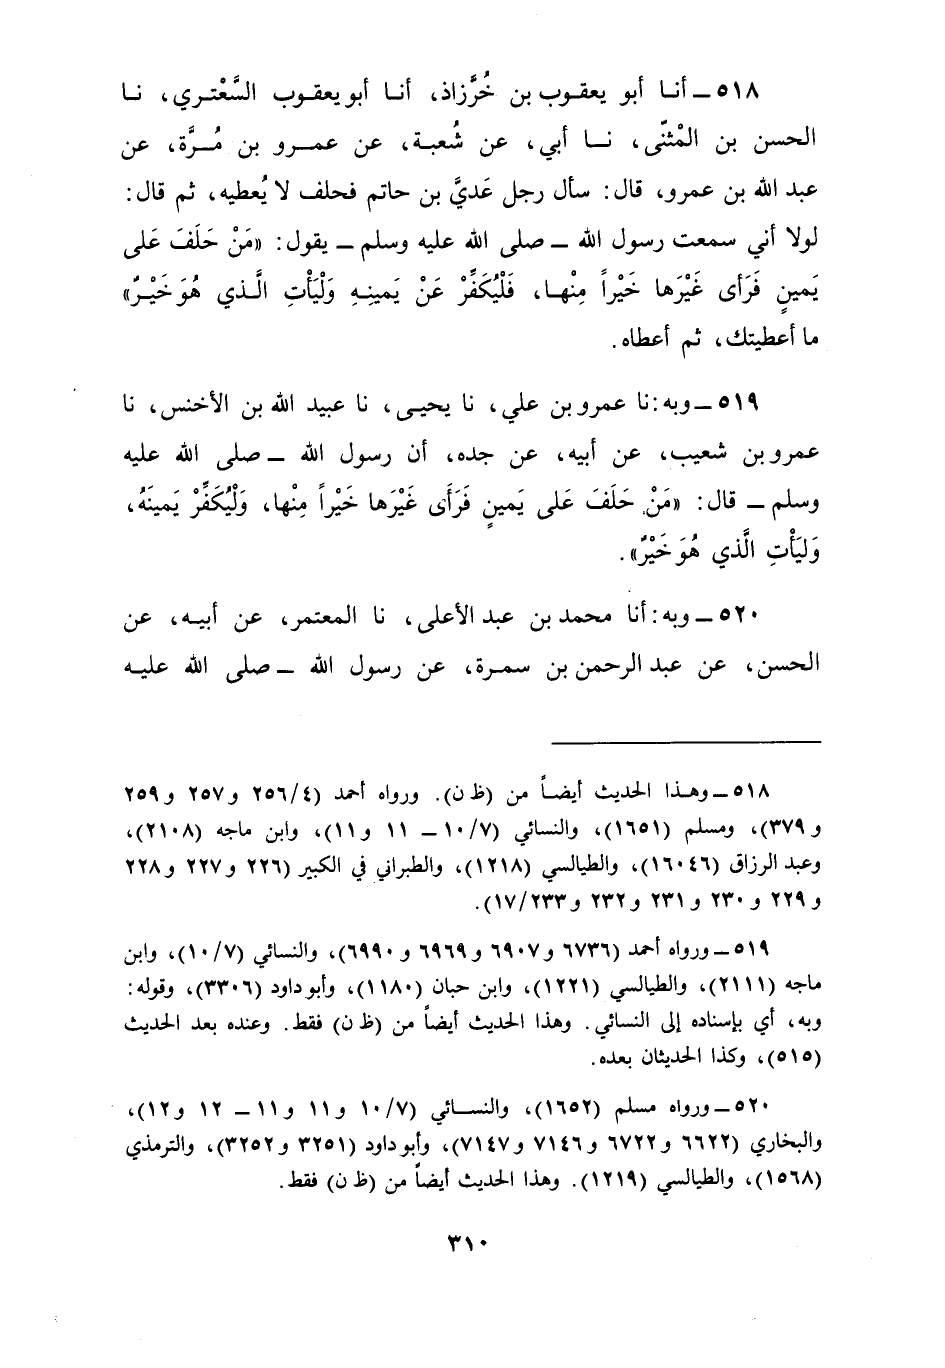 ٥١٨ ــ أنـا أبو يعقـوب بن خُرَّزاذ، أنـا أبو يعقـوب السَّعْتـري، نـا
الحسن بن المْثنّى، نـا أبي، عن شُعبـة، عن عمـرو بن مُـرَّة، عن
عبد الله بن عمرو، قال: سأل رجل عَديَّ بن حاتم فحلف لا يُعطيه، ثم قال:
لولا أني سمعت رسول الله ــ صلى الله عليه وسلم ــ يقول: «مَنْ حَلَفَ عَلى
يَمينٍ فَرَأى غَيْرَها خَيْراً مِنْهـا، فَلْيُكَفِّرْ عَنْ يَمينِـهِ وَلْيَأْتِ الَّـذي هُوَ خَيْـرٌ»
ما أعطيتك، ثم أعطاه.
٥١٩ ــ وبه: نا عمرو بن علي، نا يحيـى، نا عبيد الله بن الأخنس، نا
عمرو بن شعيب، عن أبيه، عن جده، أن رسول الله ــ صلى الله عليه
وسلم ــ قال: «مَنْ حَلَفَ عَلى يَمينٍ فَرَأَى غَيْرَها خَيْراً مِنْها، وَلْيُكَفِّرْ يَمينَهُ،
وَليَأْتِ الَّذي هُوَ خَيْرٌ».
٥٢٠ ــ وبه: أنا محمد بن عبد الأعلى، نا المعتمر، عن أبيـه، عن
الحسن، عن عبد الرحمن بن سمـرة، عن رسول الله ــ صلى الله عليـه
٥١٨ ــ وهـذا الحديث أيضـاً من (ظ ن). ورواه أحمد (٢٥٦/٤ و ٢٥٧ و ٢٥٩
و ٣٧٩)، ومسلم (١٦٥١)، والنسائي (١٠/٧ ــ ١١ و ١١)، وابن ماجه (٢١٠٨)،
وعبد الرزاق (١٦٠٤٦)، والطيالسي (١٢١٨)، والطبراني في الكبير (٢٢٦ و ٢٢٧ و ٢٢٨
و ٢٢٩ و ٢٣٠ و ٢٣١ و ٢٣٢ و ١٧/٢٣٣).
٥١٩ ــ ورواه أحمد (٦٧٣٦ و ٦٩٠٧ و ٦٩٦٩ و ٦٩٩٠)، والنسائي (١٠/٧)، وابن
ماجه (٢١١١)، والطيالسي (١٢٢١)، وابن حبان (١١٨٠)، وأبو داود (٣٣٠٦)، وقوله:
وبه، أي بإسناده إلى النسائي. وهذا الحديث أيضاً من (ظ ن) فقط. وعنده بعد الحديث
(٥١٥)، وكذا الحديثان بعده.
٥٢٠ ــ ورواه مسلم (١٦٥٢)، والنسـائي (١٠/٧ و ١١ و ١١ ــ ١٢ و ١٢)،
والبخاري (٦٦٢٢ و ٦٧٢٢ و ٧١٤٦ و ٧١٤٧)، وأبو داود (٣٢٥١ و ٣٢٥٢)، والترمذي
(١٥٦٨)، والطيالسي (١٢١٩). وهذا الحديث أيضاً من (ظ ن) فقط.
٣١٠